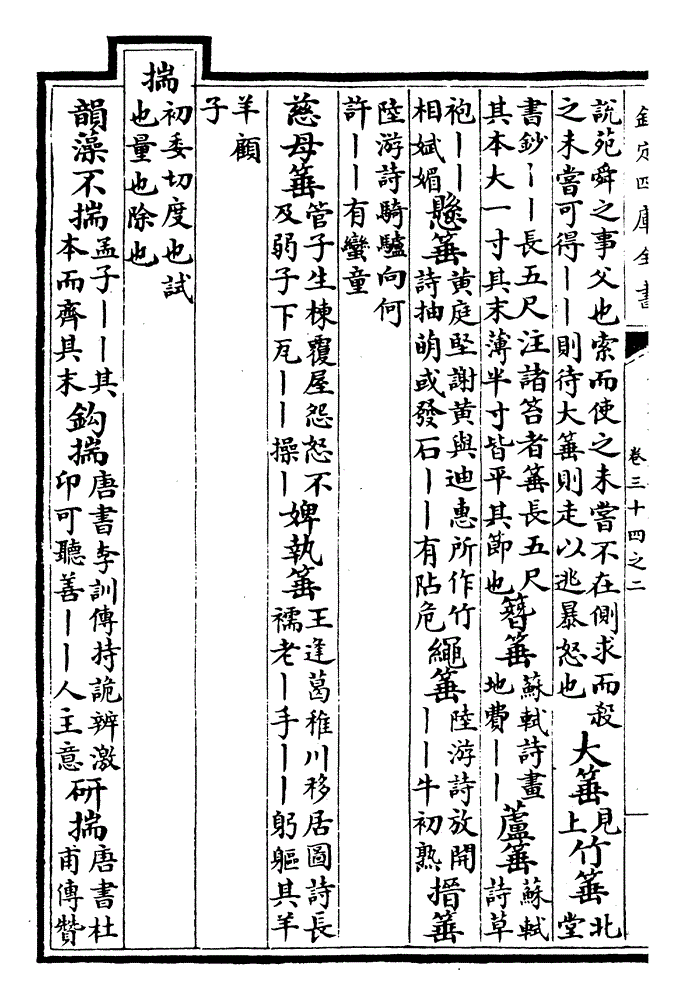 欽定四庫全書
卷三十四之二
說苑舜之事父也索而使之未嘗不在側求而殺
之未嘗可得丨丨則待大箠則走以逃暴怒也
大箠
見
上
竹箠
北
堂
書鈔丨丨長五尺注諸笞者箠長五尺
其本大一寸其末薄半寸皆平其節也
簪箠
蘇軾詩畫
地費丨丨
蘆箠
蘇軾
詩草
袍丨丨
相娬媚
懸箠
黄庭堅謝黄與迪惠所作竹
詩抽萌或發石丨丨有阽危
繩箠
陸游詩放閑
丨丨牛初熟
搢箠
陸游詩騎驢向何
許丨丨有蠻童
慈母箠
管子生棟覆屋怨怒不
及弱子下瓦丨丨操丨
婢執箠
王逢葛稚川移居圖詩長
襦老丨手丨丨躬軀其羊
羊顧
子
揣
初委切度也試
也量也除也
韻藻不揣
孟子丨丨其
本而齊其末
鈎揣
唐書李訓傳持詭辨激
印可聽善丨丨人主意
研揣
唐書杜
甫傳贊